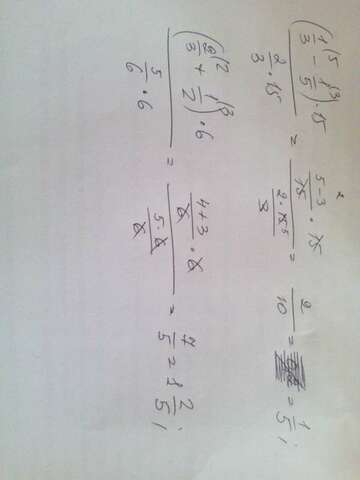 (1/3^5 - 1/5^3) · 15 / 2/3 · 15 = 5-3/15 · 15 / 2·15/3 = 2/10 = 1/5 ;
(2/3^2 + 1/2^3) · 6 / 5/6 · 6 = 4+3/6 · 6 / 5·6/6 = 7/5 = 1 2/5 ;